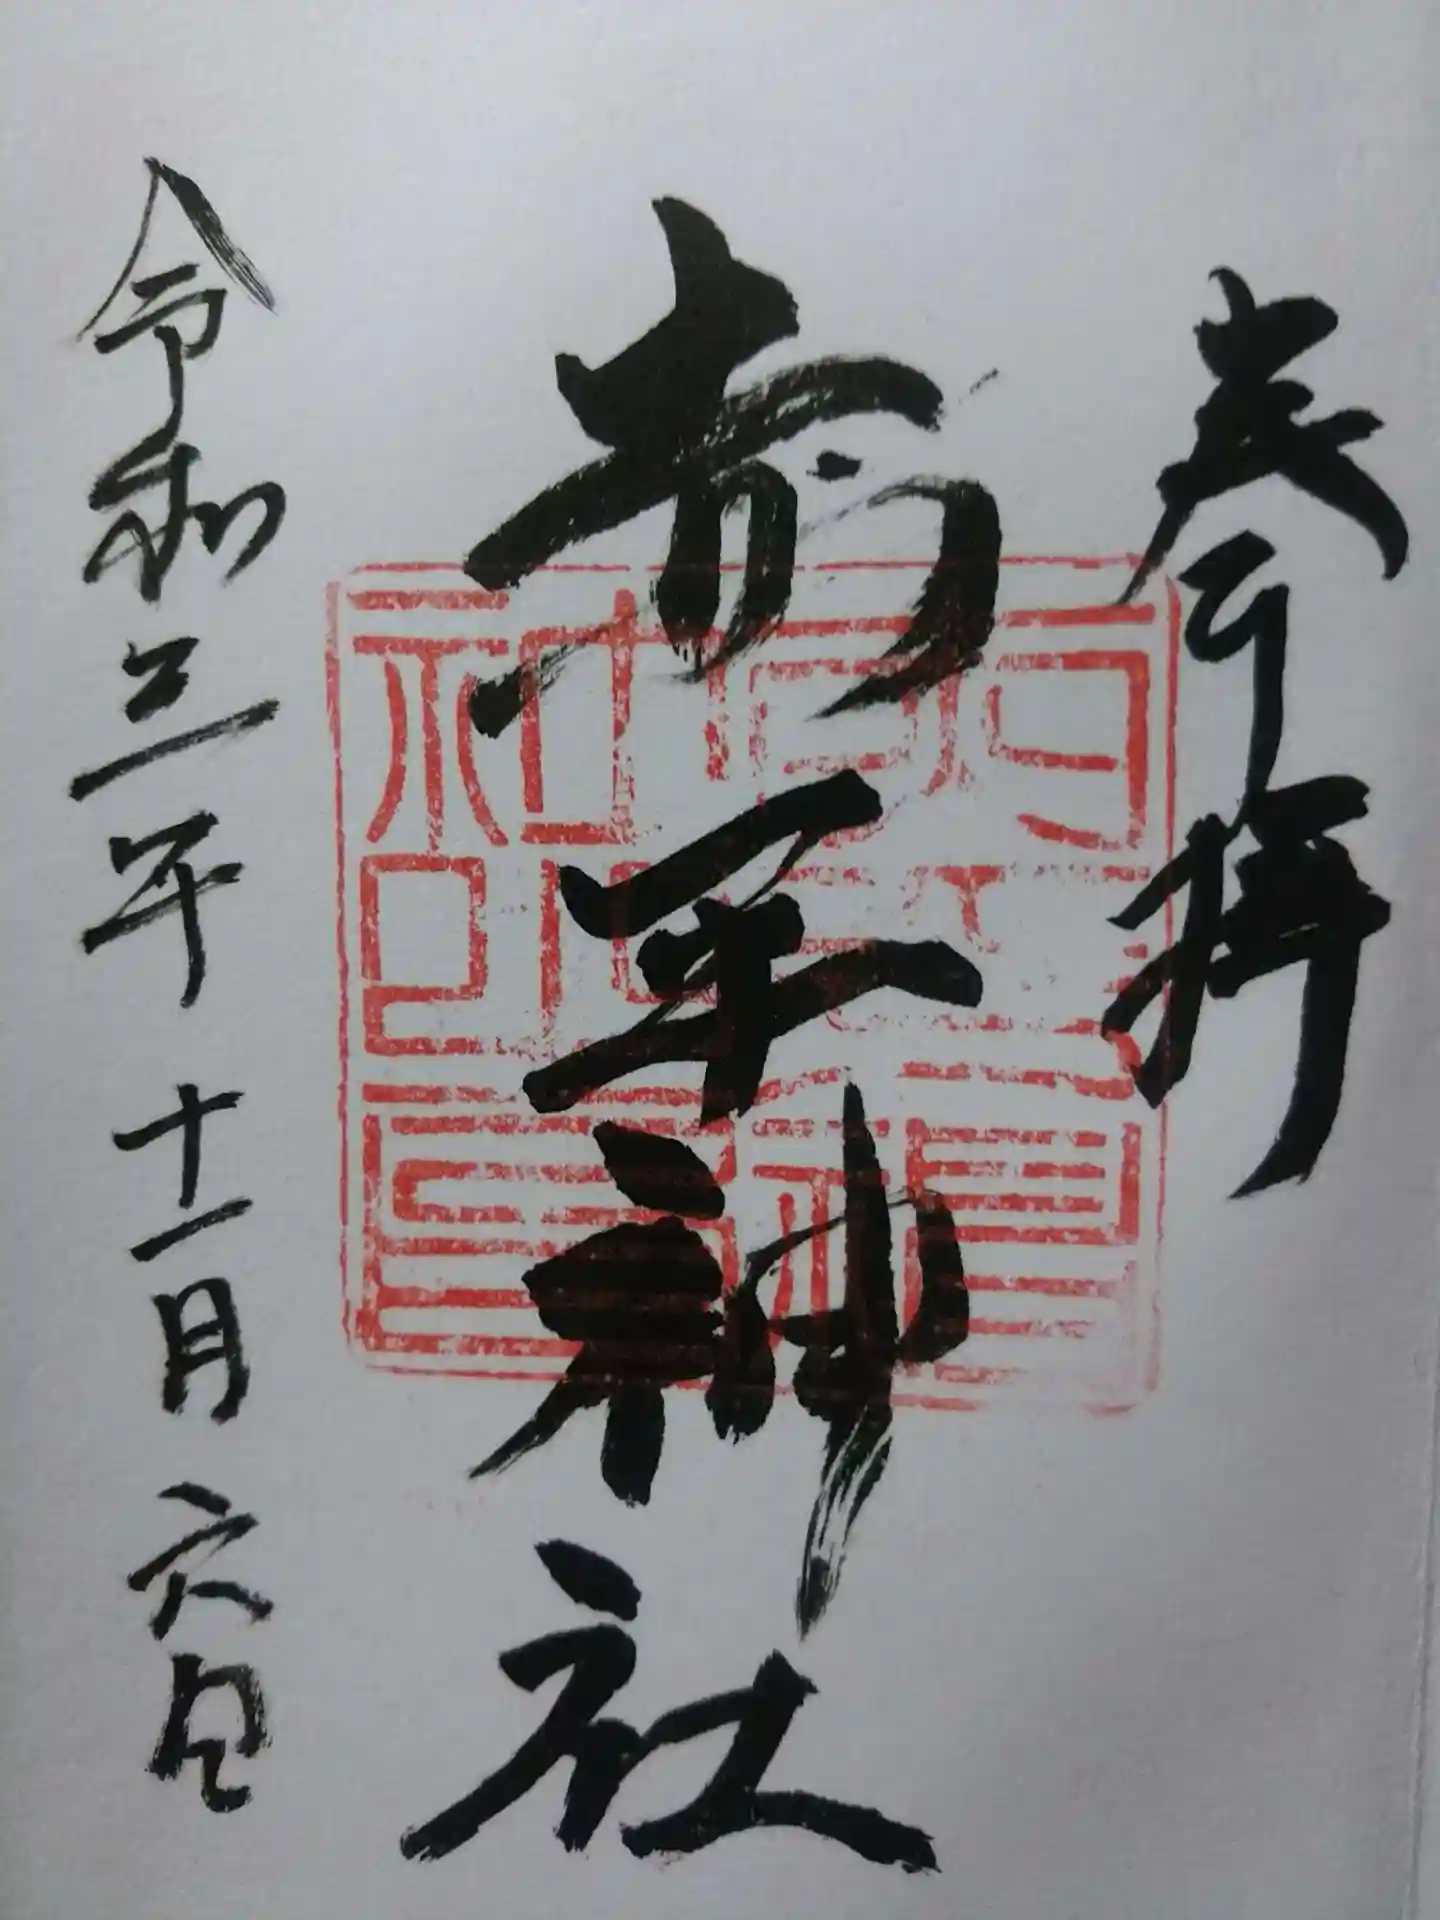 奉拝
平神社
令和三年十一月六日